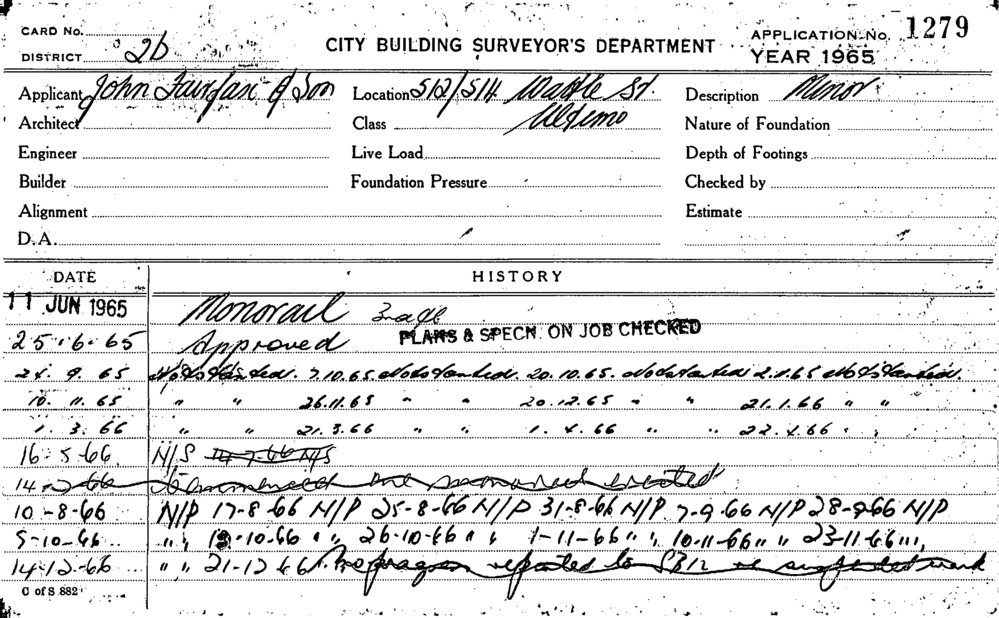 CARD No.
DISTRICT 2b
CITY BUILDING SURVEYOR'S DEPARTMENT
APPLICATION No. 1279
YEAR 1965
Applicant John Fairfax & Son Location 512/514 Wattle St. Description Minor
Architect Class Ultimo Nature of Foundation
Engineer Live Load Depth of Footings
Builder Foundation Pressure Checked by
Alignment Estimate
D.A.
DATE HISTORY
11 JUN 1965 Monorail
25.6.65 Approved PLANS & SPECN. ON JOB CHECKED
24. 9. 65 Not Started. 7.10.65. Not Started. 20.10.65. Not Started 2.11.65 Not Started.
10. 11. 65 " " 26.11.65 " " 20.12.65 " " 21.1.66 " "
1. 3. 66 " " 21.3.66 " " 1. 4. 66 " " 22.4.66 " "
16-5-66. N/S 14-7-66 N/S
14-7-66 Commenced one monorail erected
10-8-66 N/P 17-8-66 N/P 25-8-66 N/P 31-8-66 N/P 7-9-66 N/P 28-9-66 N/P
5-10-66 " " 12-10-66 " " 26-10-66 " " 1-11-66 " " 10-11-66 " " 23-11-66 " "
14-12-66 " " 21-12-66 No progress reported to re work
C of S 882